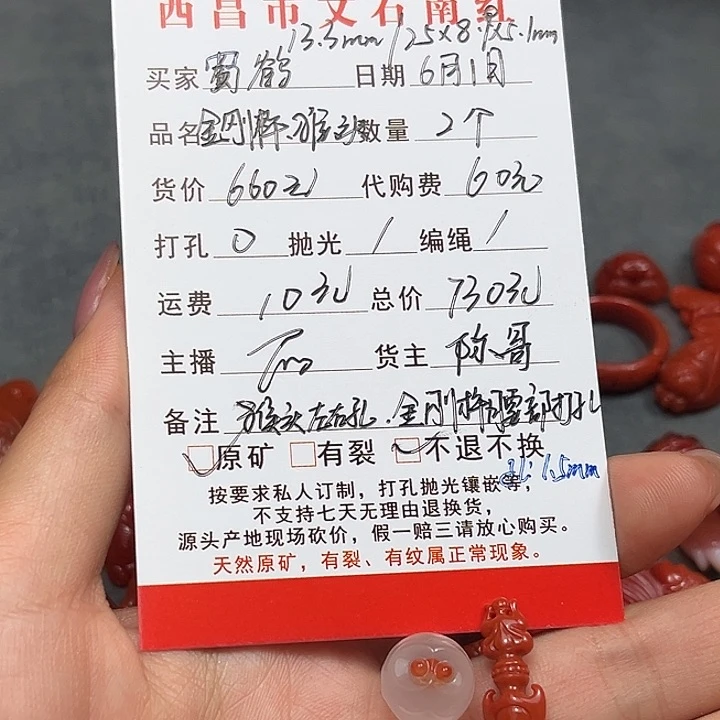 西昌市文石南红
13.3mm / 25×8.9×5.1mm
买家 蜀鹤 日期 6月1日
品名 金刚杵.猴头 数量 2个
货价 660元 代购费 60元
打孔 0 抛光 / 编绳 /
运费 10元 总价 730元
主播 货主 陈哥
备注 猴头左右孔.金刚杵腰部打孔
原矿 有裂 不退不换
孔:1.5mm
按要求私人订制,打孔抛光镶嵌等,
不支持七天无理由退换货,
源头产地现场砍价,假一赔三请放心购买。
天然原矿,有裂、有纹属正常现象。